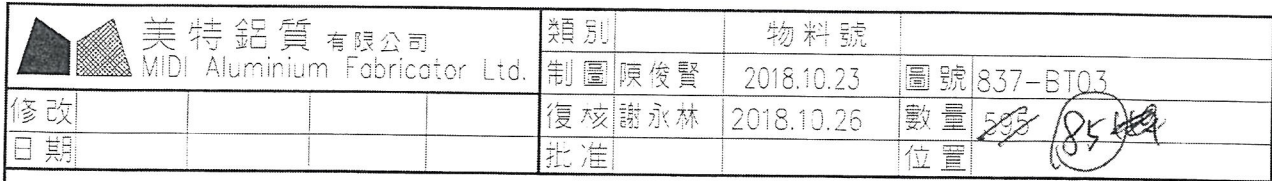 美特鋁質有限公司
MIDI Aluminium Fabricator Ltd.
類別 物料號
制圖 陳俊賢 2018.10.23 圖號 837-BT03
修改 復核 謝永林 2018.10.26 數量 595 85
日期 批准 位置